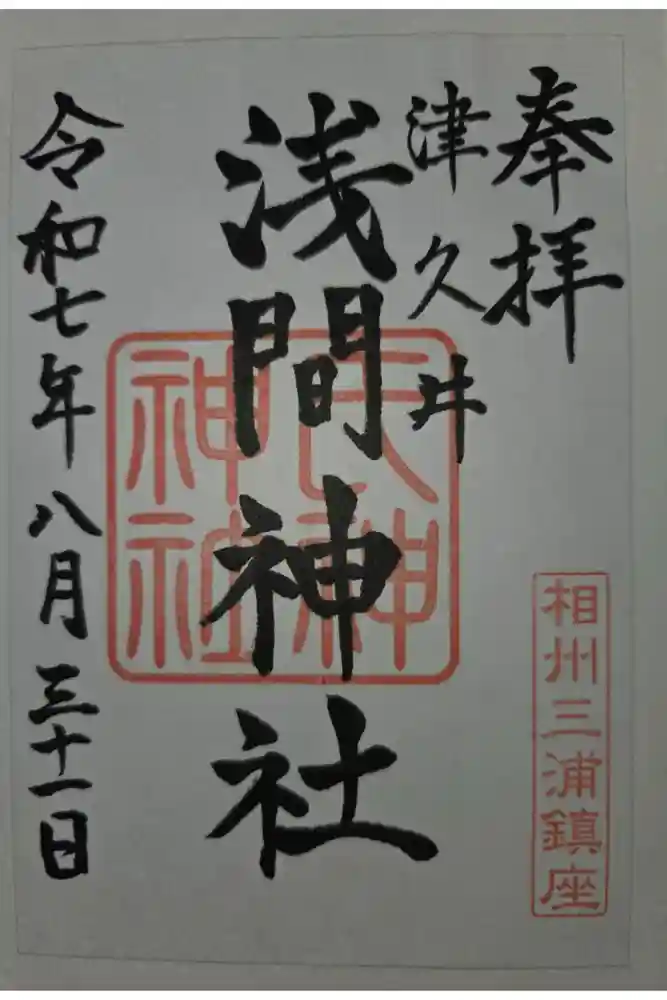 奉拝
津久井
浅間神社
令和七年八月三十一日
相州三浦鎮座
神
神社